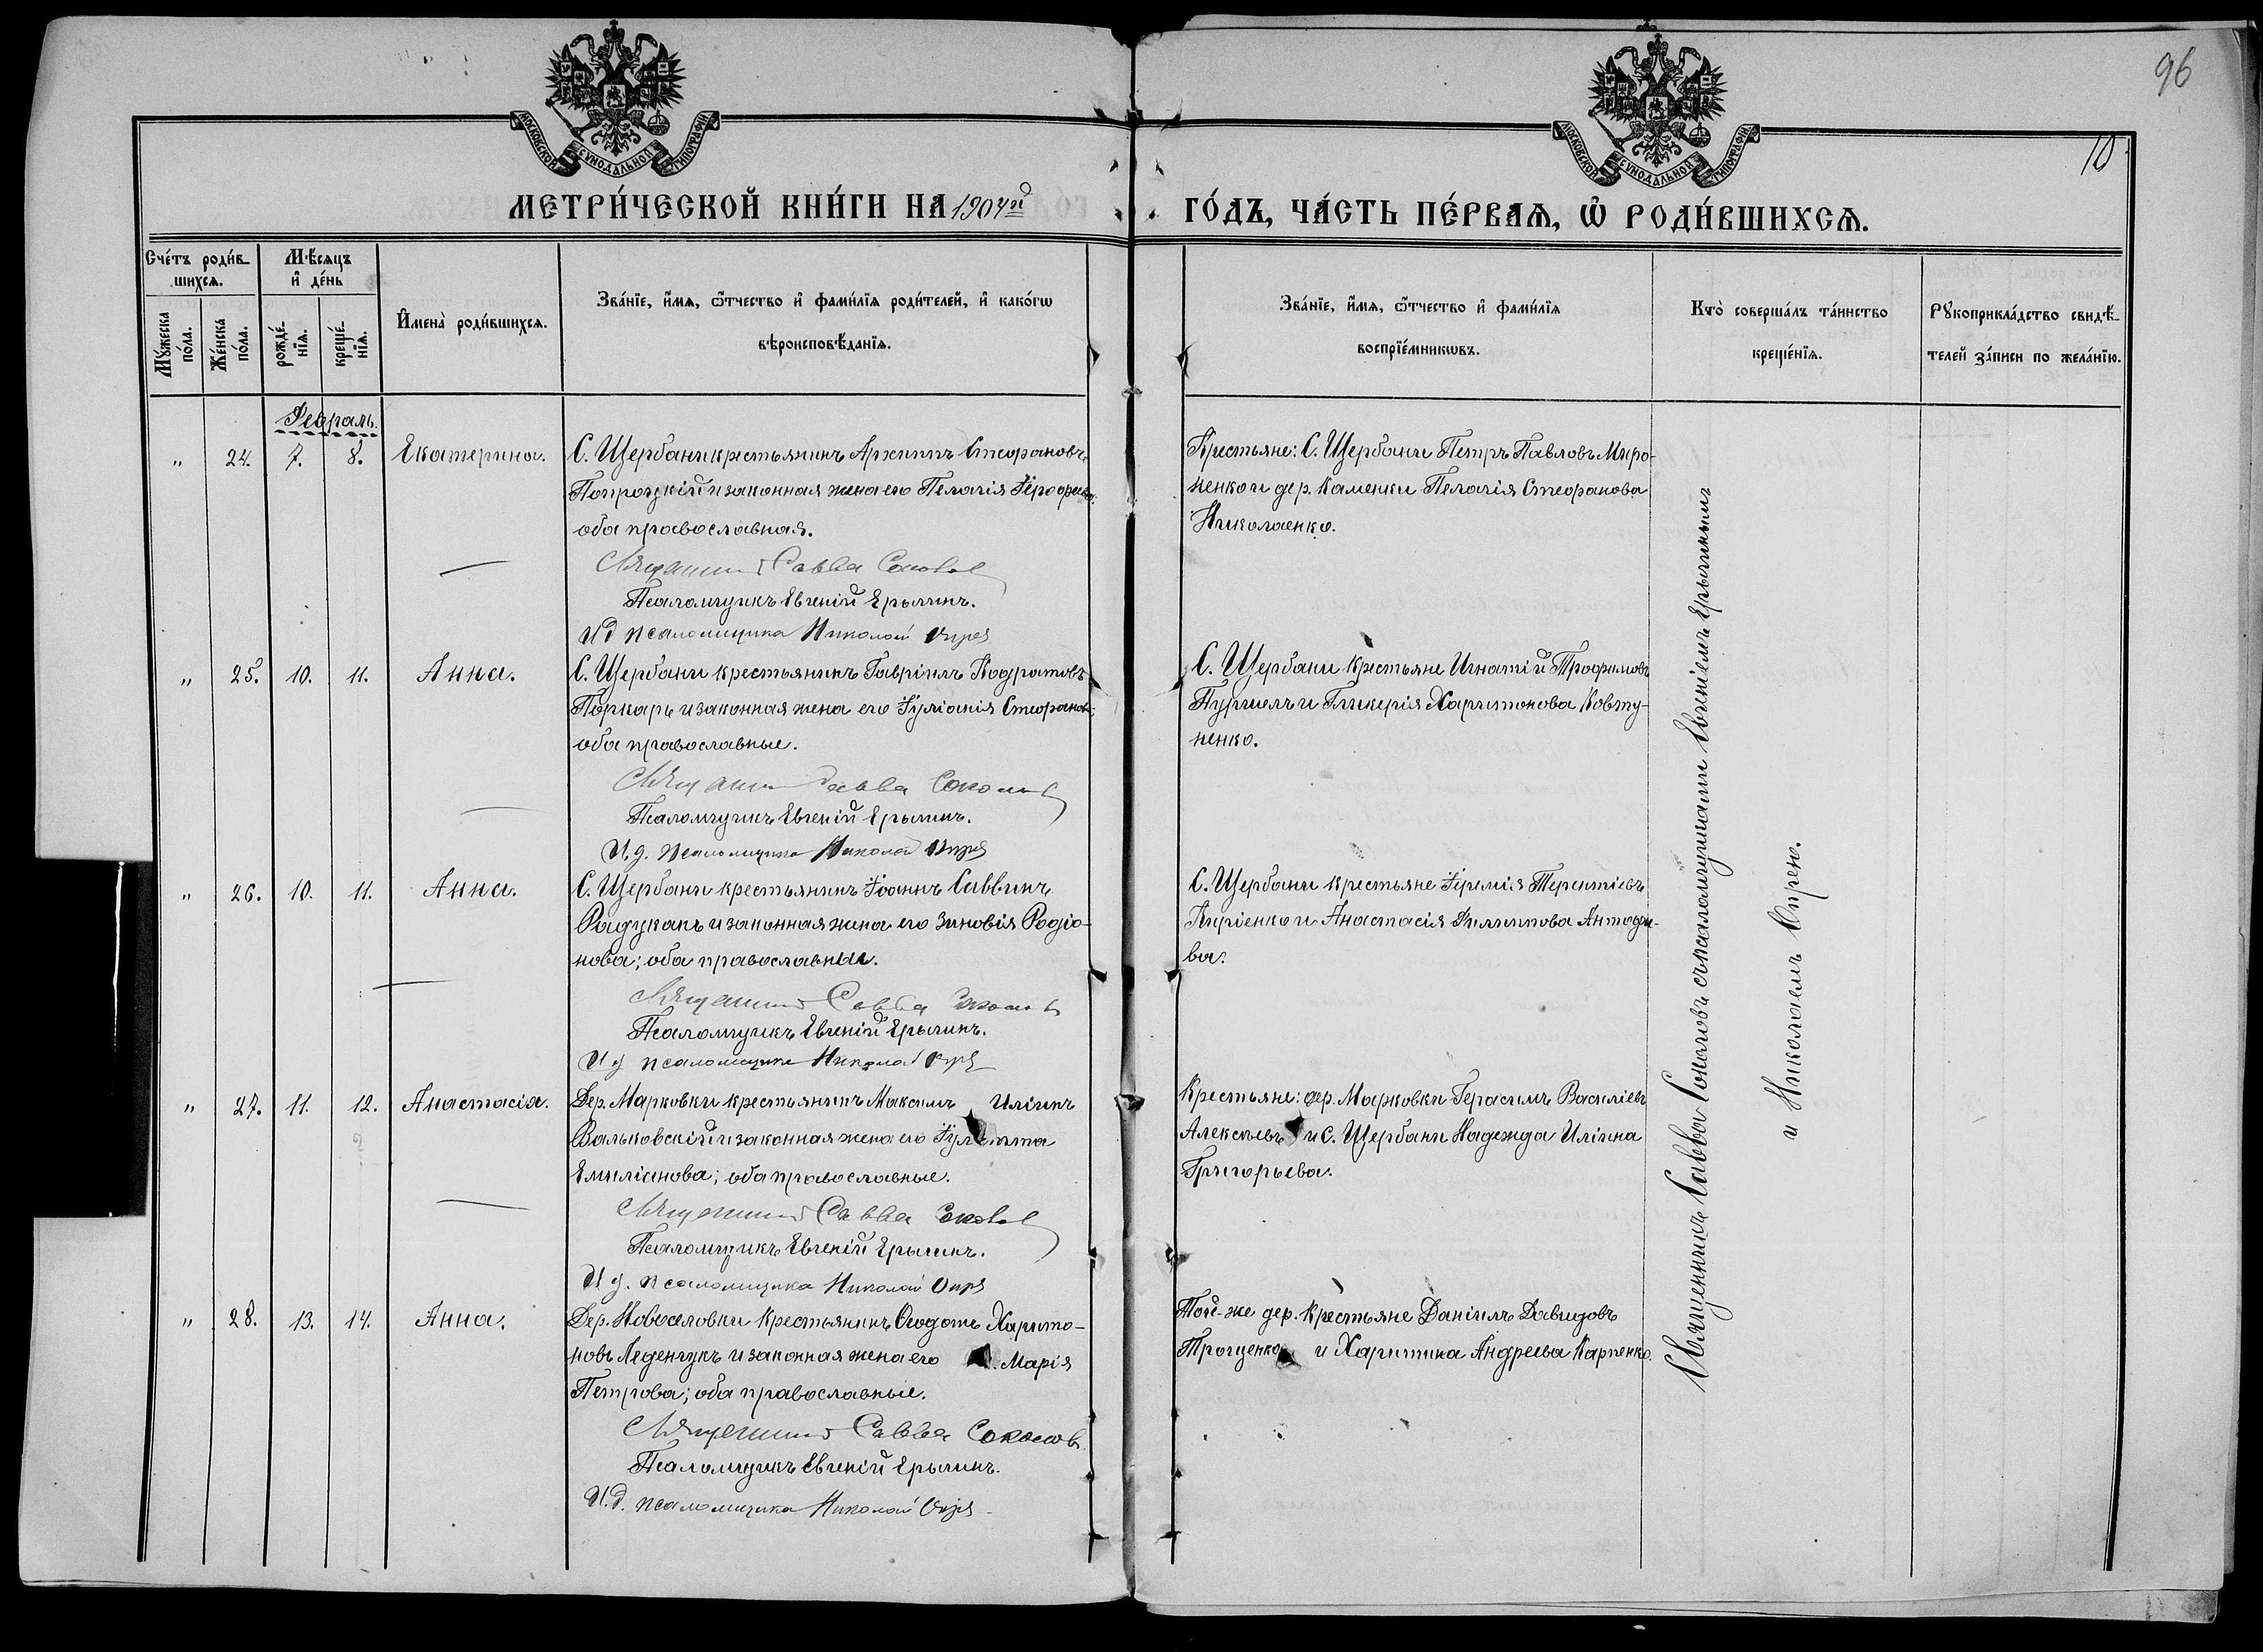 96
10
МОСКОВСКОЙ СѴНОДАЛЬНОЙ ТИПОГРАФІИ
МОСКОВСКОЙ СѴНОДАЛЬНОЙ ТИПОГРАФІИ
МЕТРИ́ЧЕСКОЙ КНИ́ГИ НА 1904й ГО́ДЪ, ЧА́СТЬ ПЕ́РВАѦ, Ѡ҆ РОДИ́ВШИХСѦ.
Сче́тъ роди́в-
шихсѧ.
Мѣ́сѧцъ
и҆ де́нь
Мꙋ́жеска по́ла.
Же́нска по́ла.
рожде́-
нїѧ.
креще́-
нїѧ.
И҆мена̀ роди́вшихсѧ.
Зва́нїе, и҆́мѧ, ѻ҆́тчество и҆ фами́лїѧ роди́телей, и҆ како́гѡ
вѣроисповѣ́данїѧ.
Зва́нїе, и҆́мѧ, ѻ҆́тчество и҆ фами́лїѧ
воспрїе́мникѡвъ.
Кто̀ соверша́лъ та́инство
креще́нїѧ.
Рꙋкоприкла́дство свидѣ́-
телей за́писи по жела́нїю.
Февраль.
" 24. 7. 8. Екатерина.
С. Щербани крестьянинъ Архиппъ Стефановъ
и законная жена его Пелагія
оба православная.
Священникъ Савва Соколов
Псаломщикъ Евгеній Ерыгинъ.
И д псаломщика Николай
Крестьяне: С. Щербани Петръ Павловъ Миро-
ненко и дер. Каменки Пелагія Стефанова
Николаенко.
" 25. 10. 11. Анна.
С. Щербани крестьянинъ Гавріилъ Кодратовъ
Поркарь и законная жена его Іуліанія Стефанова;
оба православные.
Священникъ Савва Соколов
Псаломщикъ Евгеній Ерыгинъ.
И. д. псаломщика Николай
С. Щербани крестьяне Игнатій Трофимовъ
и Гликерія Харитонова Ковту-
ненко.
" 26. 10. 11. Анна.
С. Щербани крестьянинъ Іоаннъ Саввинъ
Радуканъ и законная жена его Зиновія Родіо-
нова; оба православные.
Священникъ Савва Соколов
Псаломщикъ Евгеній Ерыгинъ.
И д псаломщика Николай
С. Щербани крестьяне Іеремія Терентіевъ
Киріенко и Анастасія Филиппова
ва.
" 27. 11. 12. Анастасія.
Дер. Марковки крестьянинъ Максимъ Иліинъ
Вальковскій и законная жена его
Емиліанова; оба православные.
Священникъ Савва Соколов
Псаломщикъ Евгеній Ерыгинъ.
И д. псаломщика Николай
Крестьяне: дер. Марковки Герасимъ Василіевъ
Алексѣевъ и С. Щербани Надежда Иліина
Григорьева.
" 28. 13. 14. Анна.
Дер. Новоселовки крестьянинъ Ѳеодотъ Харито-
новъ Леденчукъ и законная жена его Марія
Петрова; оба православные.
Священникъ Савва Соколовъ
Псаломщикъ Евгеній Ерыгинъ.
И. д. псаломщика Николай
Той-же дер. крестьяне Даніилъ Давидовъ
Троценко и Харитина Андреева Карпенко.
Священникъ Савва Соколовъ съ псаломщиками Евгеніемъ Ерыгинымъ
и Николаемъ